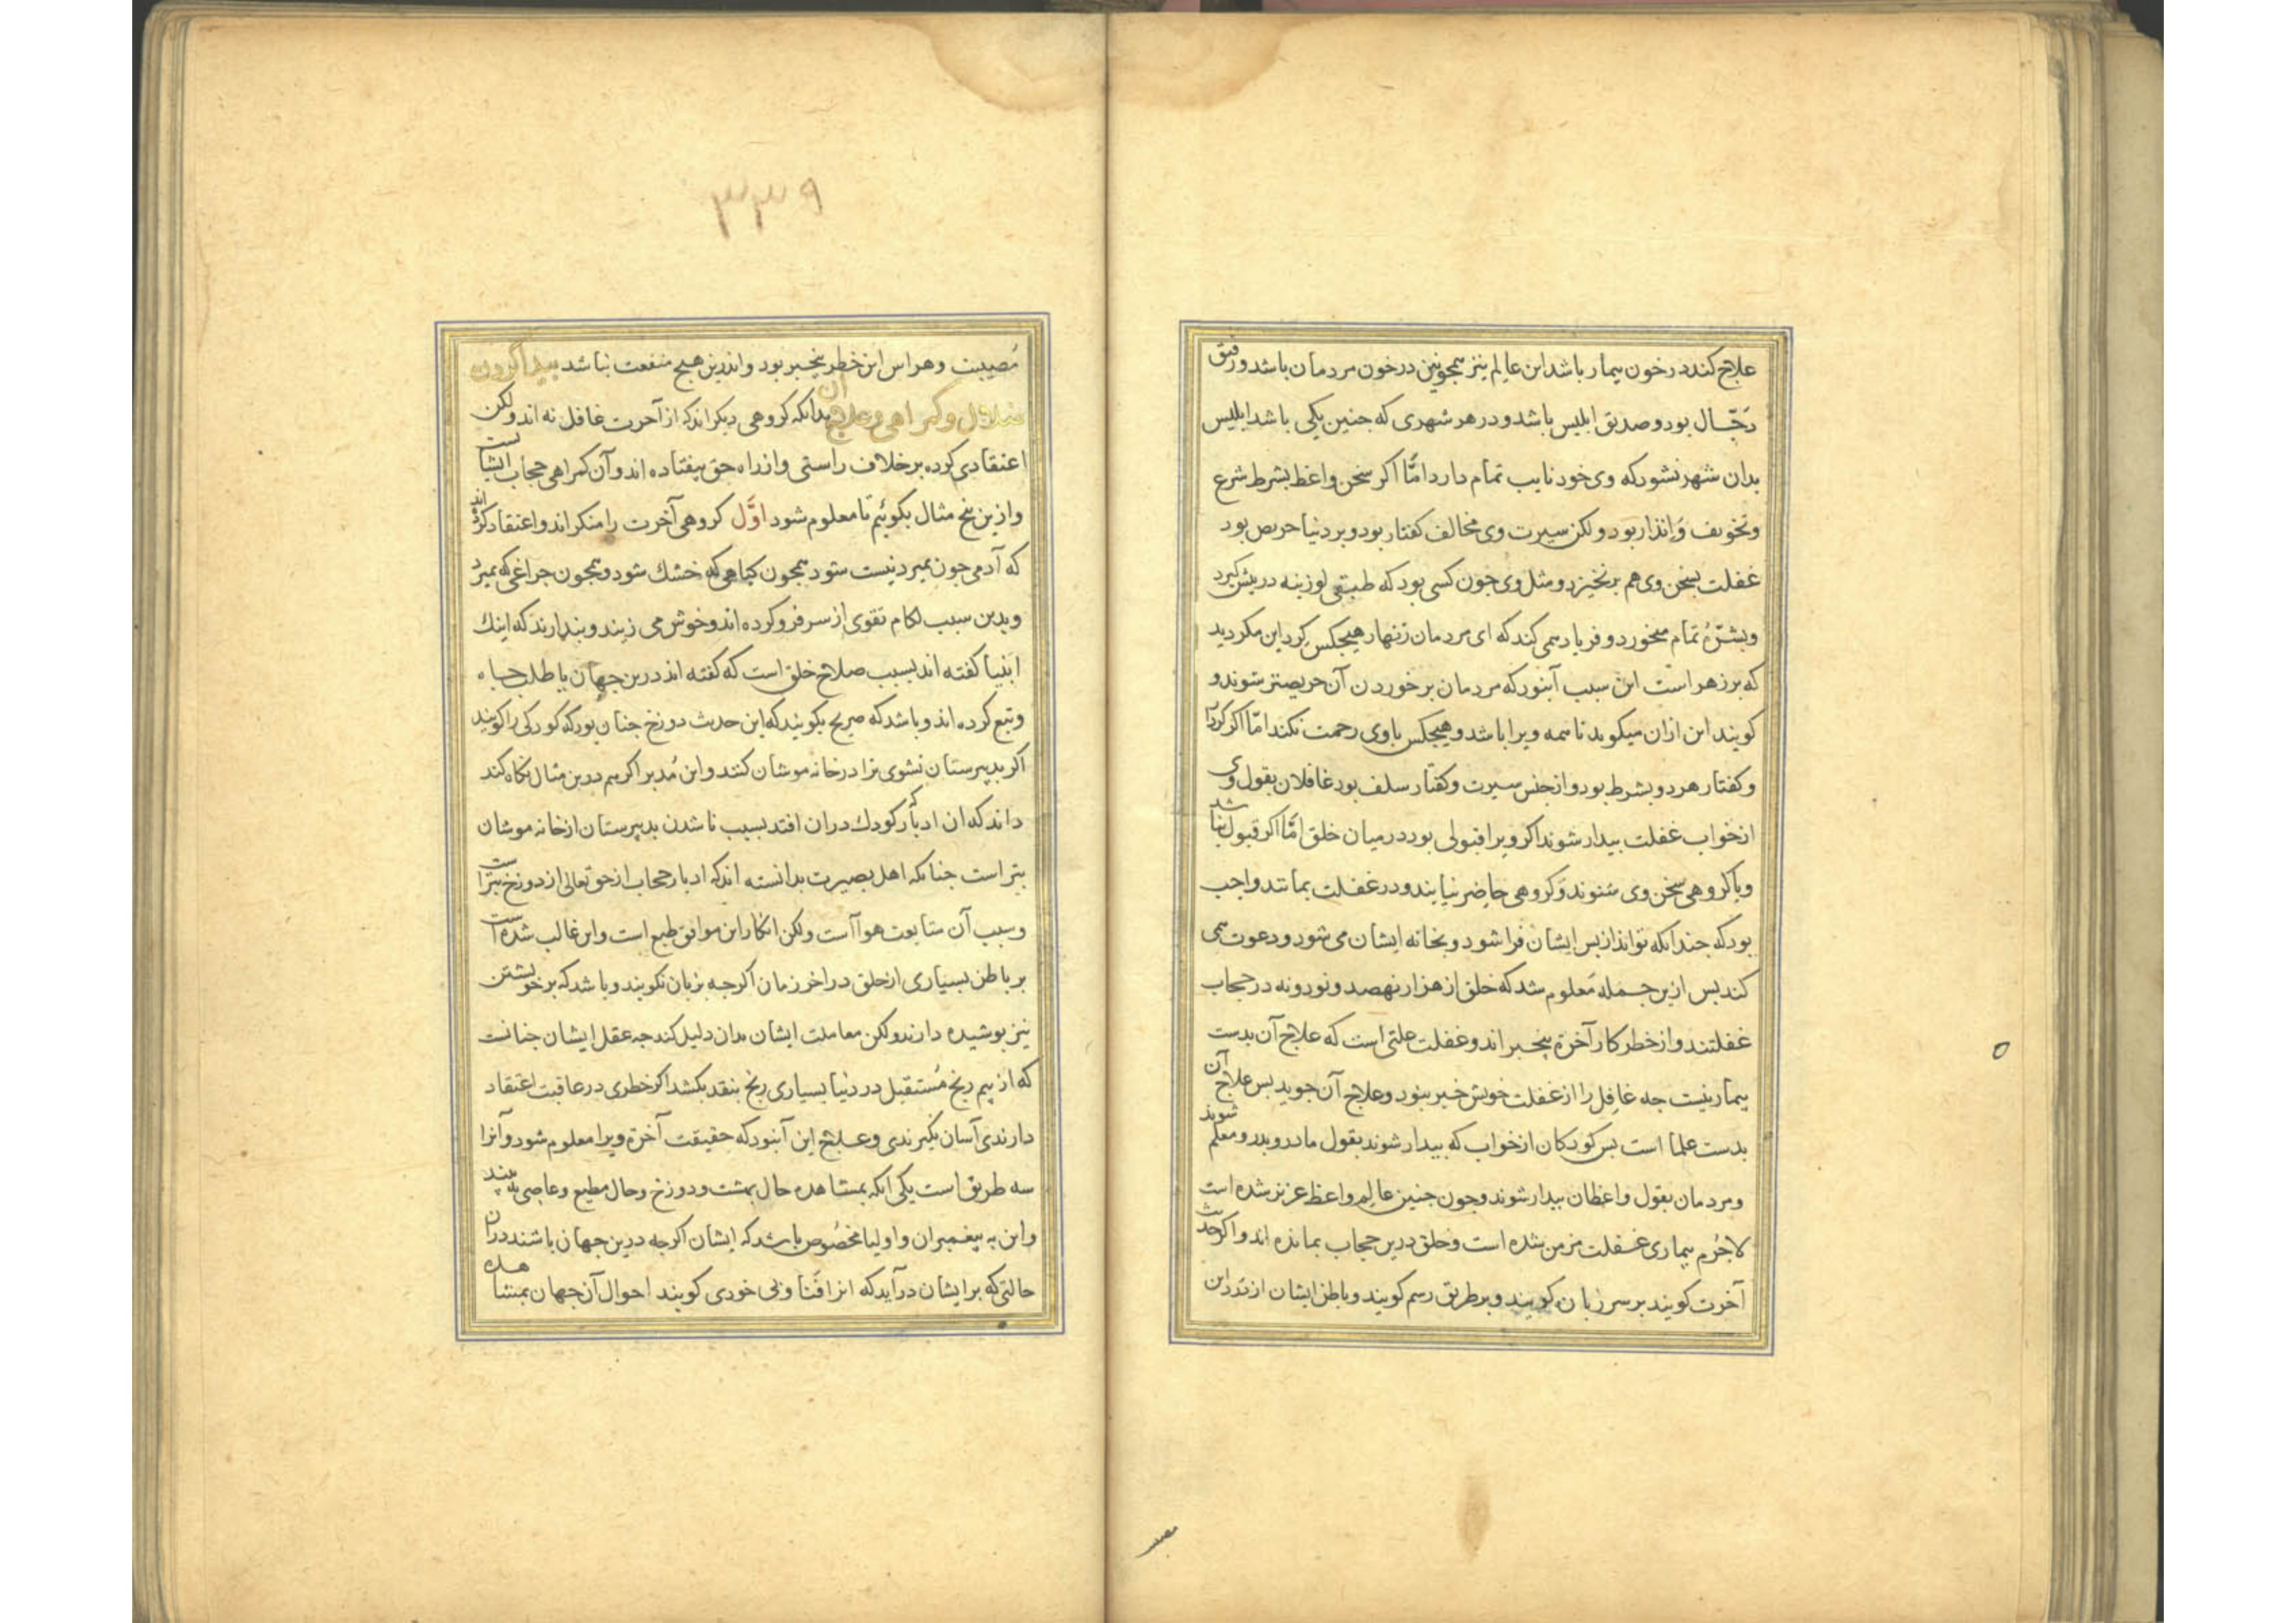 علاج کند در خون بیمار باشد این عالم نیز همچونین در خون مردمان باشد و رفیق
دَجّال بود و صدیق ابلیس باشد و در هر شهری که جنین یکی باشد ابلیس
بدان شهر نشود که وی خود نایب تمام دارد امّا اکر سخن واعظ بشرط شرع
و تخویف وَانذار بود و لکن سیرت وی مخالف کفتار بود و بر دنیا حریص بود
غفلت بسخن وی هم برنخیزد و مثل وی جون کسی بود که طبقی لوزینه در بیش کیرد
و بشَرَه تمام میخورد و فریاد همی کند که ای مردمان زنهار هیجکس کرد این مکردید
که بر زهر است این سبب آنبود که مردمان بر خوردن آن حریصتر شوند و
کویند این ازان میکوید تا همه ویرا باشد و هیجکس باوی رحمت نکند امّا اکر کردار
و کفتار هر دو بشرط بود و از جنس سیرت و کفتار سلف بود غافلان بقول وی
از خواب غفلت بیدار شوند اکر ویرا قبولی بود در میان خلق امّا اکر قبول نباشد
و یا کروهی سخن وی شنوند وَکروهی حاضر نیایند و در غفلت بمانند واجب
بود که جندانکه تواند از بس ایشان فرا شود و بخانه ایشان می شود و دعوت همی
کند بس ازین جمله مَعلوم شد که خلق از هزار نهصد و نود و نه در حجاب
غفلتند و از خطر کار آخرة بیخبر اند و غفلت علتی است که علاج آن بدست
بیمار نیست جه غافِل را از غفلت خویش خبر نبود و علاج آن جوید بس علاج آن
بدست علما است بس کودکان از خواب که بیدار شوند بقول مادر و بدر و معلم شوند
و مردمان بقول واعظان بیدار شوند و جون جنین عالِم و اعظ عزیز شده است
لاجَرَم بیماری غفلت مزمن شده است و خلق درین حجاب بمانده اند و اکر حدیث
آخرت کویند بر سر زبان کویند و بر طریق رسم کویند و باطن ایشان از دَرد این
۳۳۹
مُصیبت و هراس این خطر بیخبر بود و اندرین هیج منفعت نباشد بیدا کردن
ضلال و کمراهی و علاج آن بدانکه کروهی دیکر اند که از آخرت غافل نه اند و لکن
اعتقادی کرده بر خلاف راستی و از راه حق بیفتاده اند و آن کمراهی حجاب ایشانست
و ازین بنج مثال بکوئیم تا معلوم شود اوَّل کروهی آخرت را منکر اند و اعتقاد کرده اند
که آدمی جون بمیرد نیست شود همجون کیاهی که خشك شود و همجون جراغی که بمیرد
و بدین سبب لکام تقوی از سر فرو کرده اند و خوش می زیند و بندارند که اینك
انبیا کفته اند بسبب صلاح خلق است که کفته اند درین جهان یا طلب جاه
و تبع کرده اند و باشد که صریح بکویند که این حدیث دوزخ جنان بود که کودکی را کویند
اکر بدبیرستان نشوی ترا در خانه موشان کنند و این مُدبر اکر هم درین مثال نکاه کند
داند که ان ادبار که کودك دران افتد بسبب ناشدن بدبیرستان از خانه موشان
بتر است جنانکه اهل بصیرت بدانسته اند که ادبار حجاب از حق تعالی از دوزخ بتر است
و سبب آن متابعت هوا است و لکن انکار این موافق طبع است و این غالب شده است
بر باطن بسیاری از خلق در اخر زمان اکرجه بزبان نکویند و باشد که بر خویشتن
نیز بوشیده دارند و لکن معاملت ایشان بدان دلیل کند جه عقل ایشان جنانست
که از بیم رنج مُستقبل در دنیا بسیاری رنج بنقد بکشد اکر خطری در عاقبت اعتقاد
دارندی آسان نکیرندی و علاج این آنبود که حقیقت آخرة ویرا معلوم شود و آنرا
سه طریق است یکی انکه بمشاهده حال بهشت و دوزخ و حال مطیع و عاصی به بیند
و این به بیغمبران و اولیا مخصُوص باشد که ایشان اکرجه درین جهان باشند دران
حالتی که بر ایشان درآید که انرا فَنا و بی خودی کویند احوال آن جهان بمشاهده